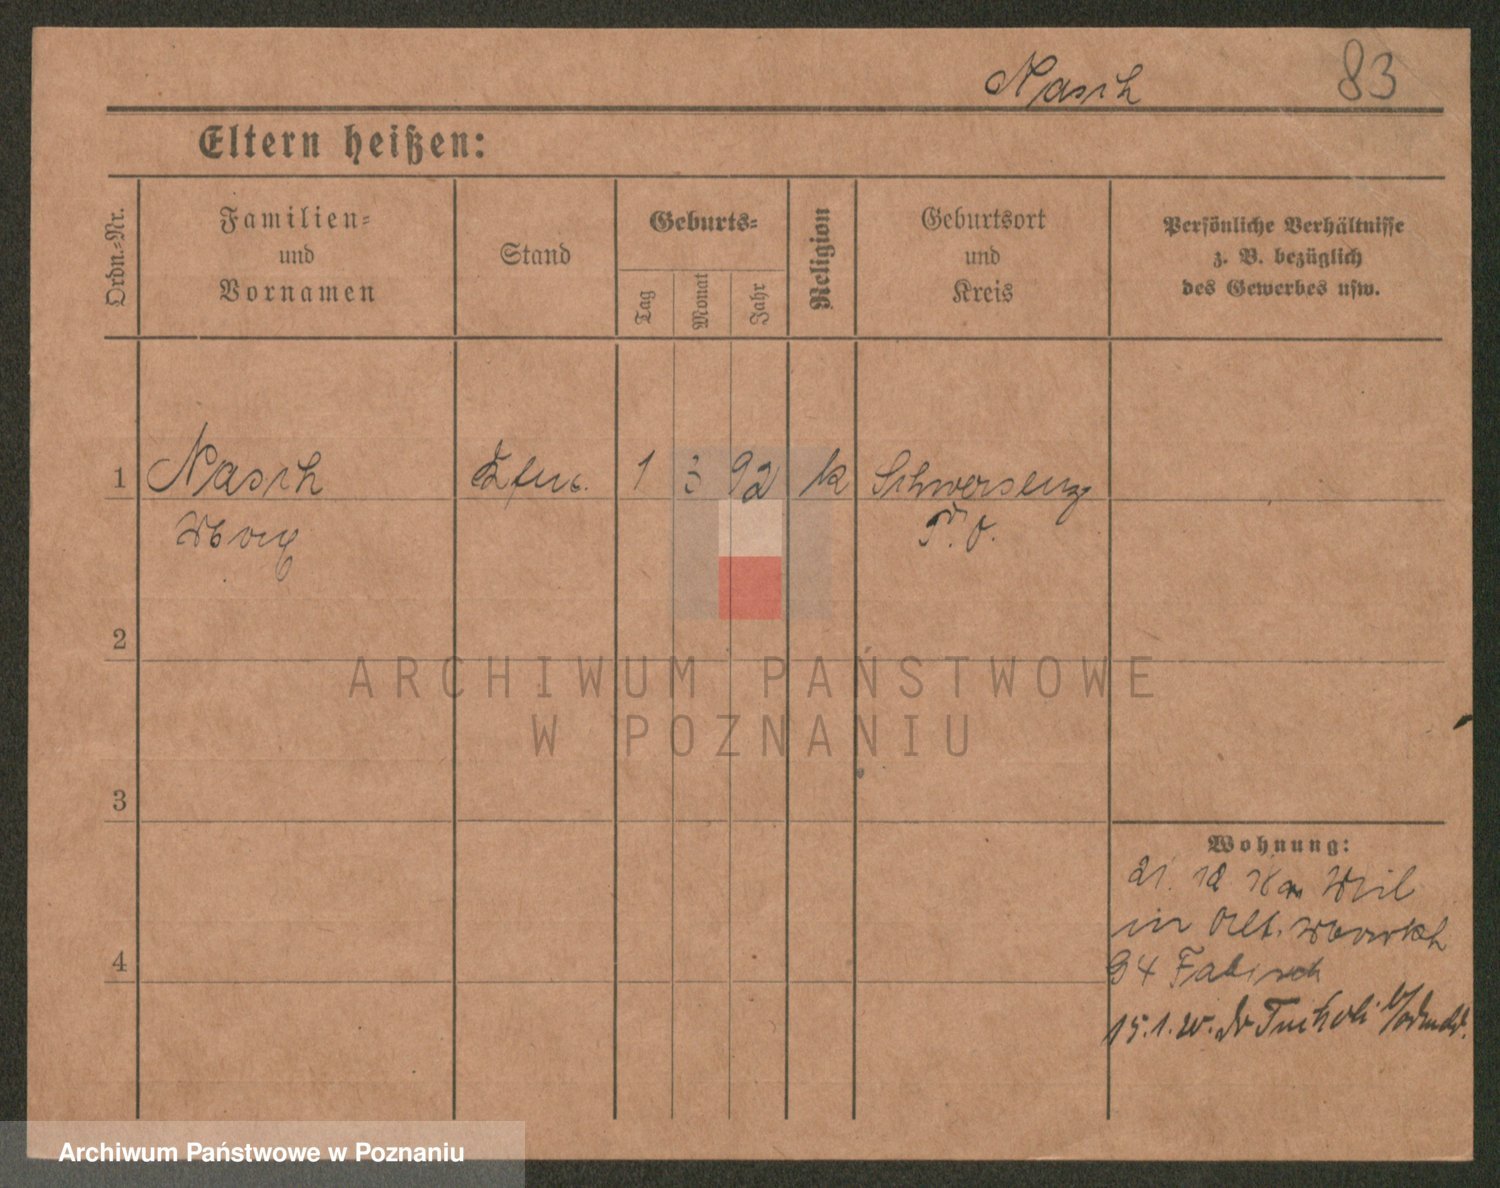 Nasch 83
Eltern heißen:
Ordn.-Nr.
Familien-
und
Vornamen
Stand
Geburts-
Tag
Monat
Jahr
Religion
Geburtsort
und
Kreis
Persönliche Verhältnisse
z. B. bezüglich
des Gewerbes usw.
1 Nasch 1 3 92 k Schwersenz
P. O.
2
ARCHIWUM PAŃSTWOWE
W POZNANIU
3
Wohnung:
21. 12
in Alt.
4
94 Fabisch
15.1.20.
Archiwum Państwowe w Poznaniu